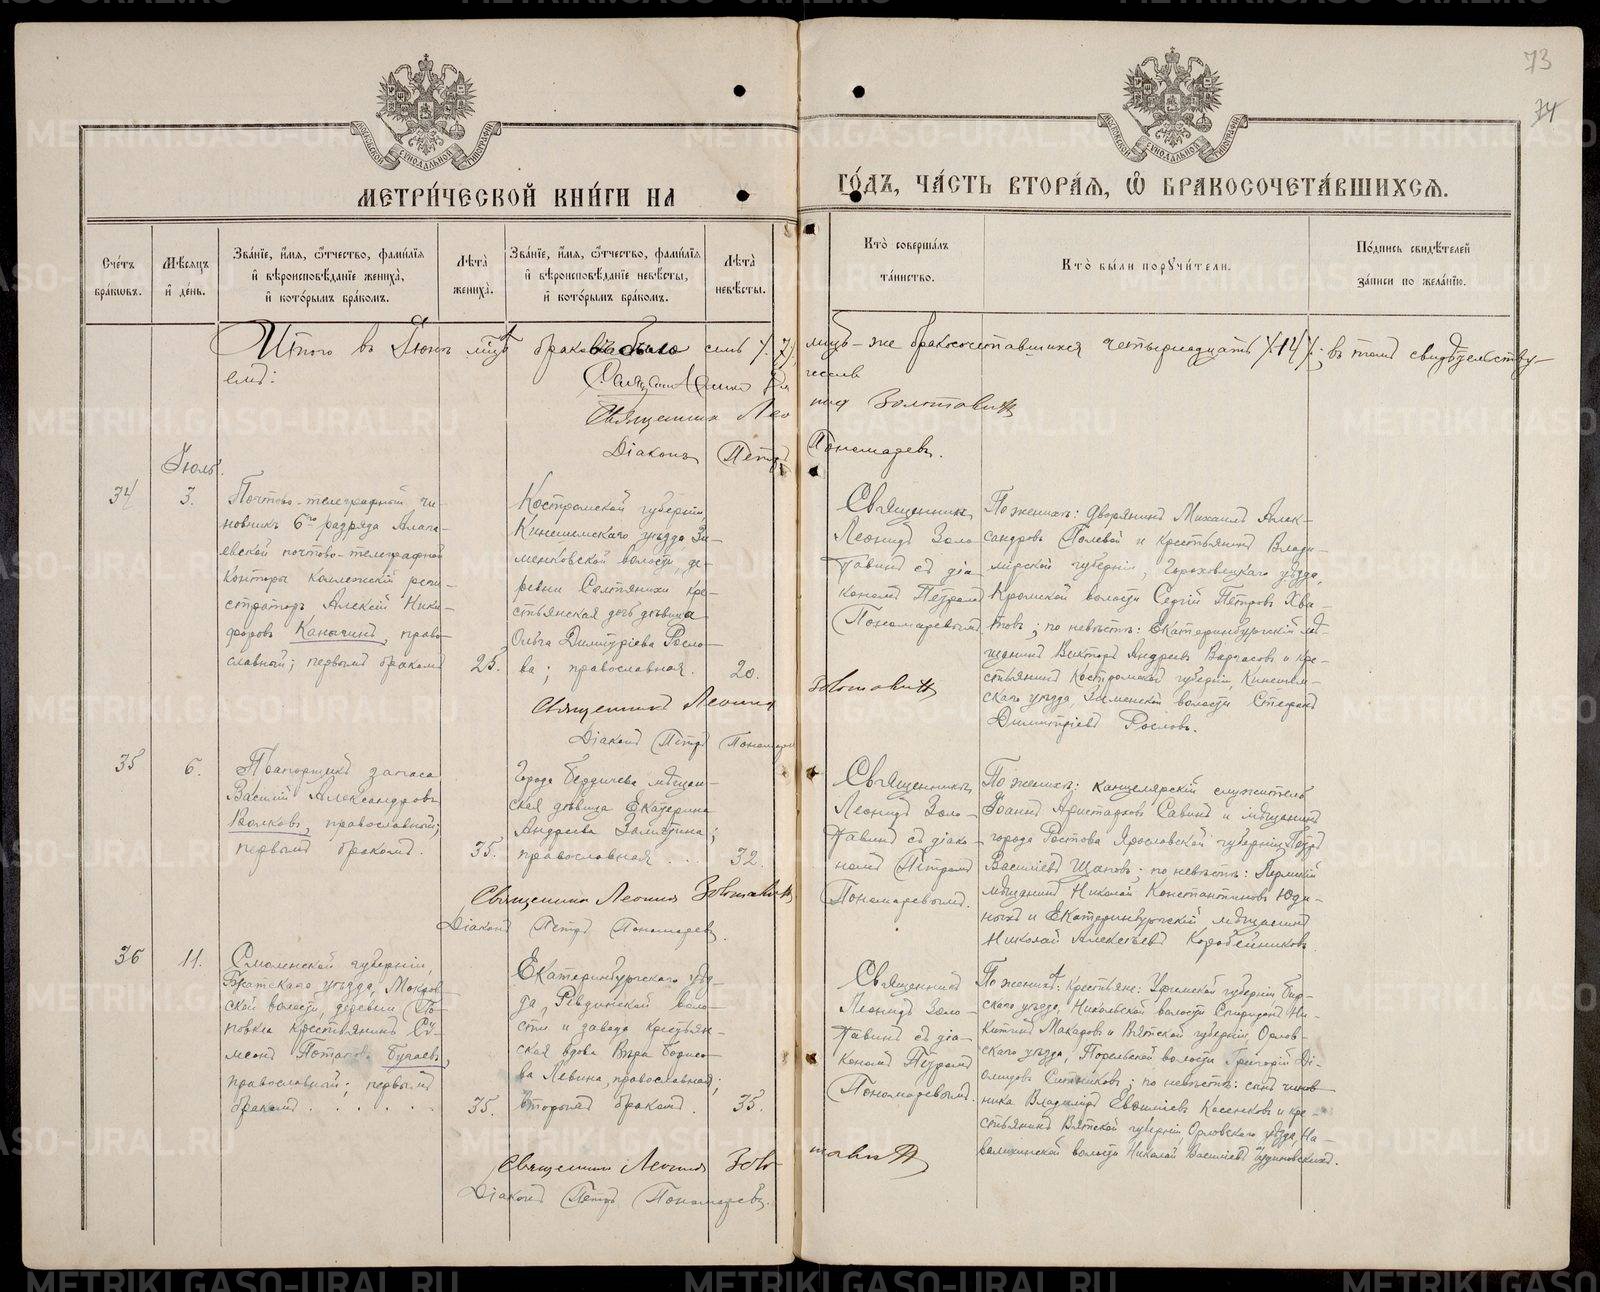 73
74
МЕТРИЧЕСКОЙ КНИГИ НА
ГОДЪ, ЧАСТЬ ВТОРАЯ, Ѡ БРАКОСОЧЕТАВШИХСЯ.
Счетъ браковъ.
Мѣсяцъ и день.
Званіе, имя, отчество, фамилія
и вѣроисповѣданіе жениха,
и которымъ бракомъ.
Лѣта жениха.
Званіе, имя, отчество, фамилія
и вѣроисповѣданіе невѣсты,
и которымъ бракомъ.
Лѣта невѣсты.
Кто совершалъ
таинство.
Кто были поручители.
Подпись свидѣтелей
записи по желанію.
Итого въ Іюнѣ мцѣ браковъ было семь /7/, лицъ-же бракосочетавшихся четырнадцать /14/; въ томъ свидѣтельству-
емъ:
Священникъ Лео
нид Золотавинъ
Діаконъ Петръ
Пономаревъ.
Іюль.
34
3.
Почтово-телеграфный чи-
новникъ 6го разряда Алапа-
евской почтово-телеграфной
конторы Коллежскій реги-
страторъ Алексѣй Ники-
форовъ Каношинъ, право-
славный; первымъ бракомъ
25.
Костромской губерніи
Кинешемскаго уѣзда Зи-
менковской волости, де-
ревни Салтянихи кре-
стьянская дочь дѣвица
Ольга Димитріева Росло-
ва; православная.
20.
Священникъ Леонид
Золотавинъ
Діаконъ Петръ Пономарев
Священникъ
Леонидъ Золо-
тавинъ съ діа-
кономъ Петромъ
Пономаревымъ
По женихѣ: Дворянинъ Михаилъ Алек-
сандровъ Полевой и крестьянинъ Влади-
мірской губерніи, Гороховецкаго уѣзда,
Кромской волости Сергій Петровъ Хва-
товъ; по невѣстѣ: Екатеринбургскій мѣ-
щанинъ Викторъ Андреевъ Варгасовъ и кре-
стьянинъ Костромской губерніи, Кинешем-
скаго уѣзда, Зименской волости Стефанъ
Димитріевъ Рословъ.
35
6.
Прапорщикъ запаса
Василій Александровъ
Волковъ, православный;
первымъ бракомъ.
35.
Города Бердичева мѣщан-
ская дѣвица Екатерина
Андреева Замятина;
православная . .
32.
Священникъ Леонид Золотавинъ
Діаконъ Петръ Пономаревъ.
Священникъ
Леонидъ Золо-
тавинъ съ діако-
номъ Петромъ
Пономаревымъ.
По женихѣ: канцелярскій служитель
Іоаннъ Аристарховъ Савинъ и мѣщанинъ
города Ростова Ярославской губерніи Петръ
Василіевъ Щаповъ; по невѣстѣ: Пермскій
мѣщанинъ Николай Константиновъ Юди-
ныхъ и Екатеринбургскій мѣщанинъ
Николай Алексѣевъ Коробейниковъ.
36
11.
Смоленской губерніи,
уѣзда, Мокров-
ской волости, деревни По-
повки крестьянинъ Си-
меонъ Потаповъ Бугаевъ,
православный; первымъ
бракомъ . . . . .
35.
Екатеринбургскаго уѣз-
да, Ревдинской воло-
сти и завода крестьян-
ская вдова Вѣра Борисо-
ва Левина, православная;
вторымъ бракомъ.
35.
Священникъ Леонид Золо-
тавинъ
Діаконъ Петръ Пономаревъ.
Священникъ
Леонидъ Золо-
тавинъ съ діа-
кономъ Петромъ
Пономаревымъ.
По женихѣ: Крестьяне: Уфимской губерніи, Бир-
скаго уѣзда, Никольской волости Спиридонъ Ни-
китинъ Макаровъ и Вятской губерніи, Орлов-
скаго уѣзда, волости Григорій Ді-
омидовъ Ситниковъ; по невѣстѣ: сынъ чинов-
ника Владиміръ Евѳиміевъ Касенковъ и кре-
стьянинъ Вятской губерніи, Орловскаго уѣзда, На-
волости Николай Василіевъ
METRIKI.GASO-URAL.RU